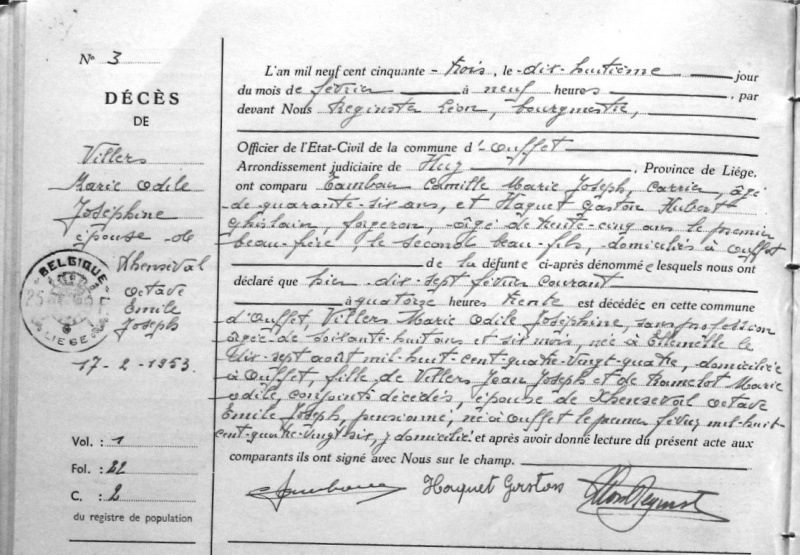 N° 3
DÉCÈS
DE
Villers
Marie Odile
Joséphine
épouse de
Xhenseval
Octave
Emile
Joseph
BELGIQUE
LIEGE
17-2-1953.
Vol. : 1
Fol. : 22
C. : 2
du registre de population
L'an mil neuf cent cinquante-trois, le dix-huitième jour
du mois de février à neuf heures, par
devant Nous Reginster Léon, bourgmestre,
Officier de l'Etat-Civil de la commune d'Ouffet
Arrondissement judiciaire de Huy, Province de Liége,
ont comparu Tambour Camille Marie Joseph, carrier, âgé
de quarante-six ans, et Haquet Gaston Hubert
Ghislain, forgeron, âgé de trente-cinq ans le premier
beau-frère, le second beau-fils, domiciliés à Ouffet
de la défunte ci-après dénommée lesquels nous ont
déclaré que hier dix-sept février courant
à quatorze heures trente est décédée en cette commune
d'Ouffet, Villers Marie Odile Joséphine, sans profession
âgée de soixante-huit ans et six mois, née à Ellemelle le
dix-sept août mil-huit-cent-quatre-vingt-quatre, domiciliée
à Ouffet, fille de Villers Jean Joseph et de Hamelot Marie
Odile, conjoints décédés, épouse de Xhenseval Octave
Emile Joseph, pensionné, né à Ouffet le premier février mil-huit-
cent-quatre-vingt-six, y domicilié. et après avoir donné lecture du présent acte aux
comparants ils ont signé avec Nous sur le champ.
Haquet Gaston